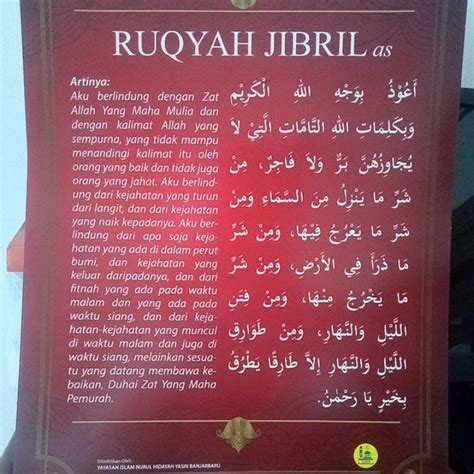 RUQYAH JIBRIL as
Artinya:
Aku berlindung dengan Zat
Allah Yang Maha Mulia dan
dengan kalimat Allah yang
sempurna, yang tidak mampu
menandingi kalimat itu oleh
orang yang baik dan tidak juga
orang yang jahat. Aku berlind-
ung dari kejahatan yang turun
dari langit, dan dari kejahatan
yang naik kepadanya. Aku ber-
lindung dari apa saja keja-
hatan yang ada di dalam perut
bumi, dan kejahatan yang
keluar daripadanya, dan dari
fitnah yang ada pada waktu
malam dan yang ada pada
waktu siang, dan dari keja-
hatan-kejahatan yang muncul
di waktu malam dan juga di
waktu siang, melainkan sesua-
tu yang datang membawa ke-
baikan, Duhai Zat Yang Maha
Pemurah.
أَعُوْذُ بِوَجْهِ اللهِ الْكَرِيْمِ
وَبِكَلِمَاتِ اللهِ التَّامَّاتِ الَّتِيْ لَا
يُجَاوِزُهُنَّ بَرٌّ وَلَا فَاجِرٌ، مِنْ
شَرِّ مَا يَنْزِلُ مِنَ السَّمَاءِ وَمِنْ
شَرِّ مَا يَعْرُجُ فِيْهَا، وَمِنْ شَرِّ
مَا ذَرَأَ فِي الْأَرْضِ، وَمِنْ شَرِّ
مَا يَخْرُجُ مِنْهَا، وَمِنْ فِتَنِ
اللَّيْلِ وَالنَّهَارِ، وَمِنْ طَوَارِقِ
اللَّيْلِ وَالنَّهَارِ إِلَّا طَارِقًا يَطْرُقُ
بِخَيْرٍ يَا رَحْمٰنُ.
Diterbitkan Oleh:
YAYASAN ISLAM NURUL HIDAYAH YASIN BANJARBARU